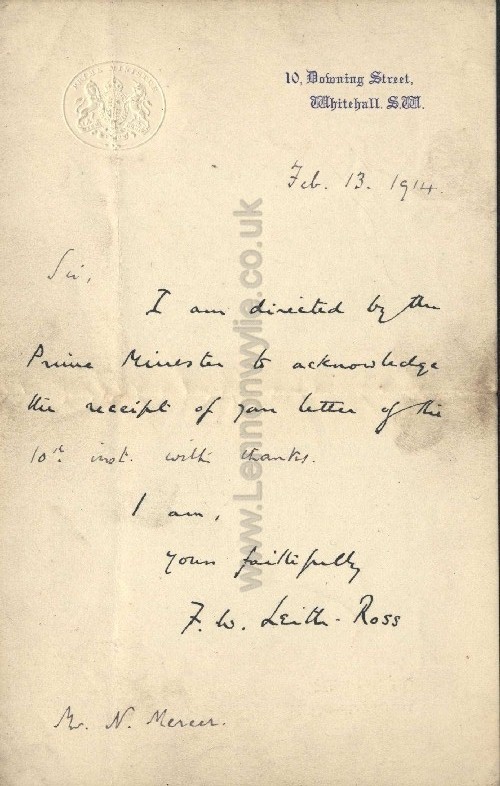 PRIME MINISTER
10, Downing Street,
Whitehall. S.W.
Feb. 13. 1914.
Sir,
I am directed by the
Prime Minister to acknowledge
the receipt of your letter of the
10th inst. with thanks.
I am,
yours faithfully
F. W. Leith-Ross
Mr. N. Mercer.
www.Lennonwylie.co.uk